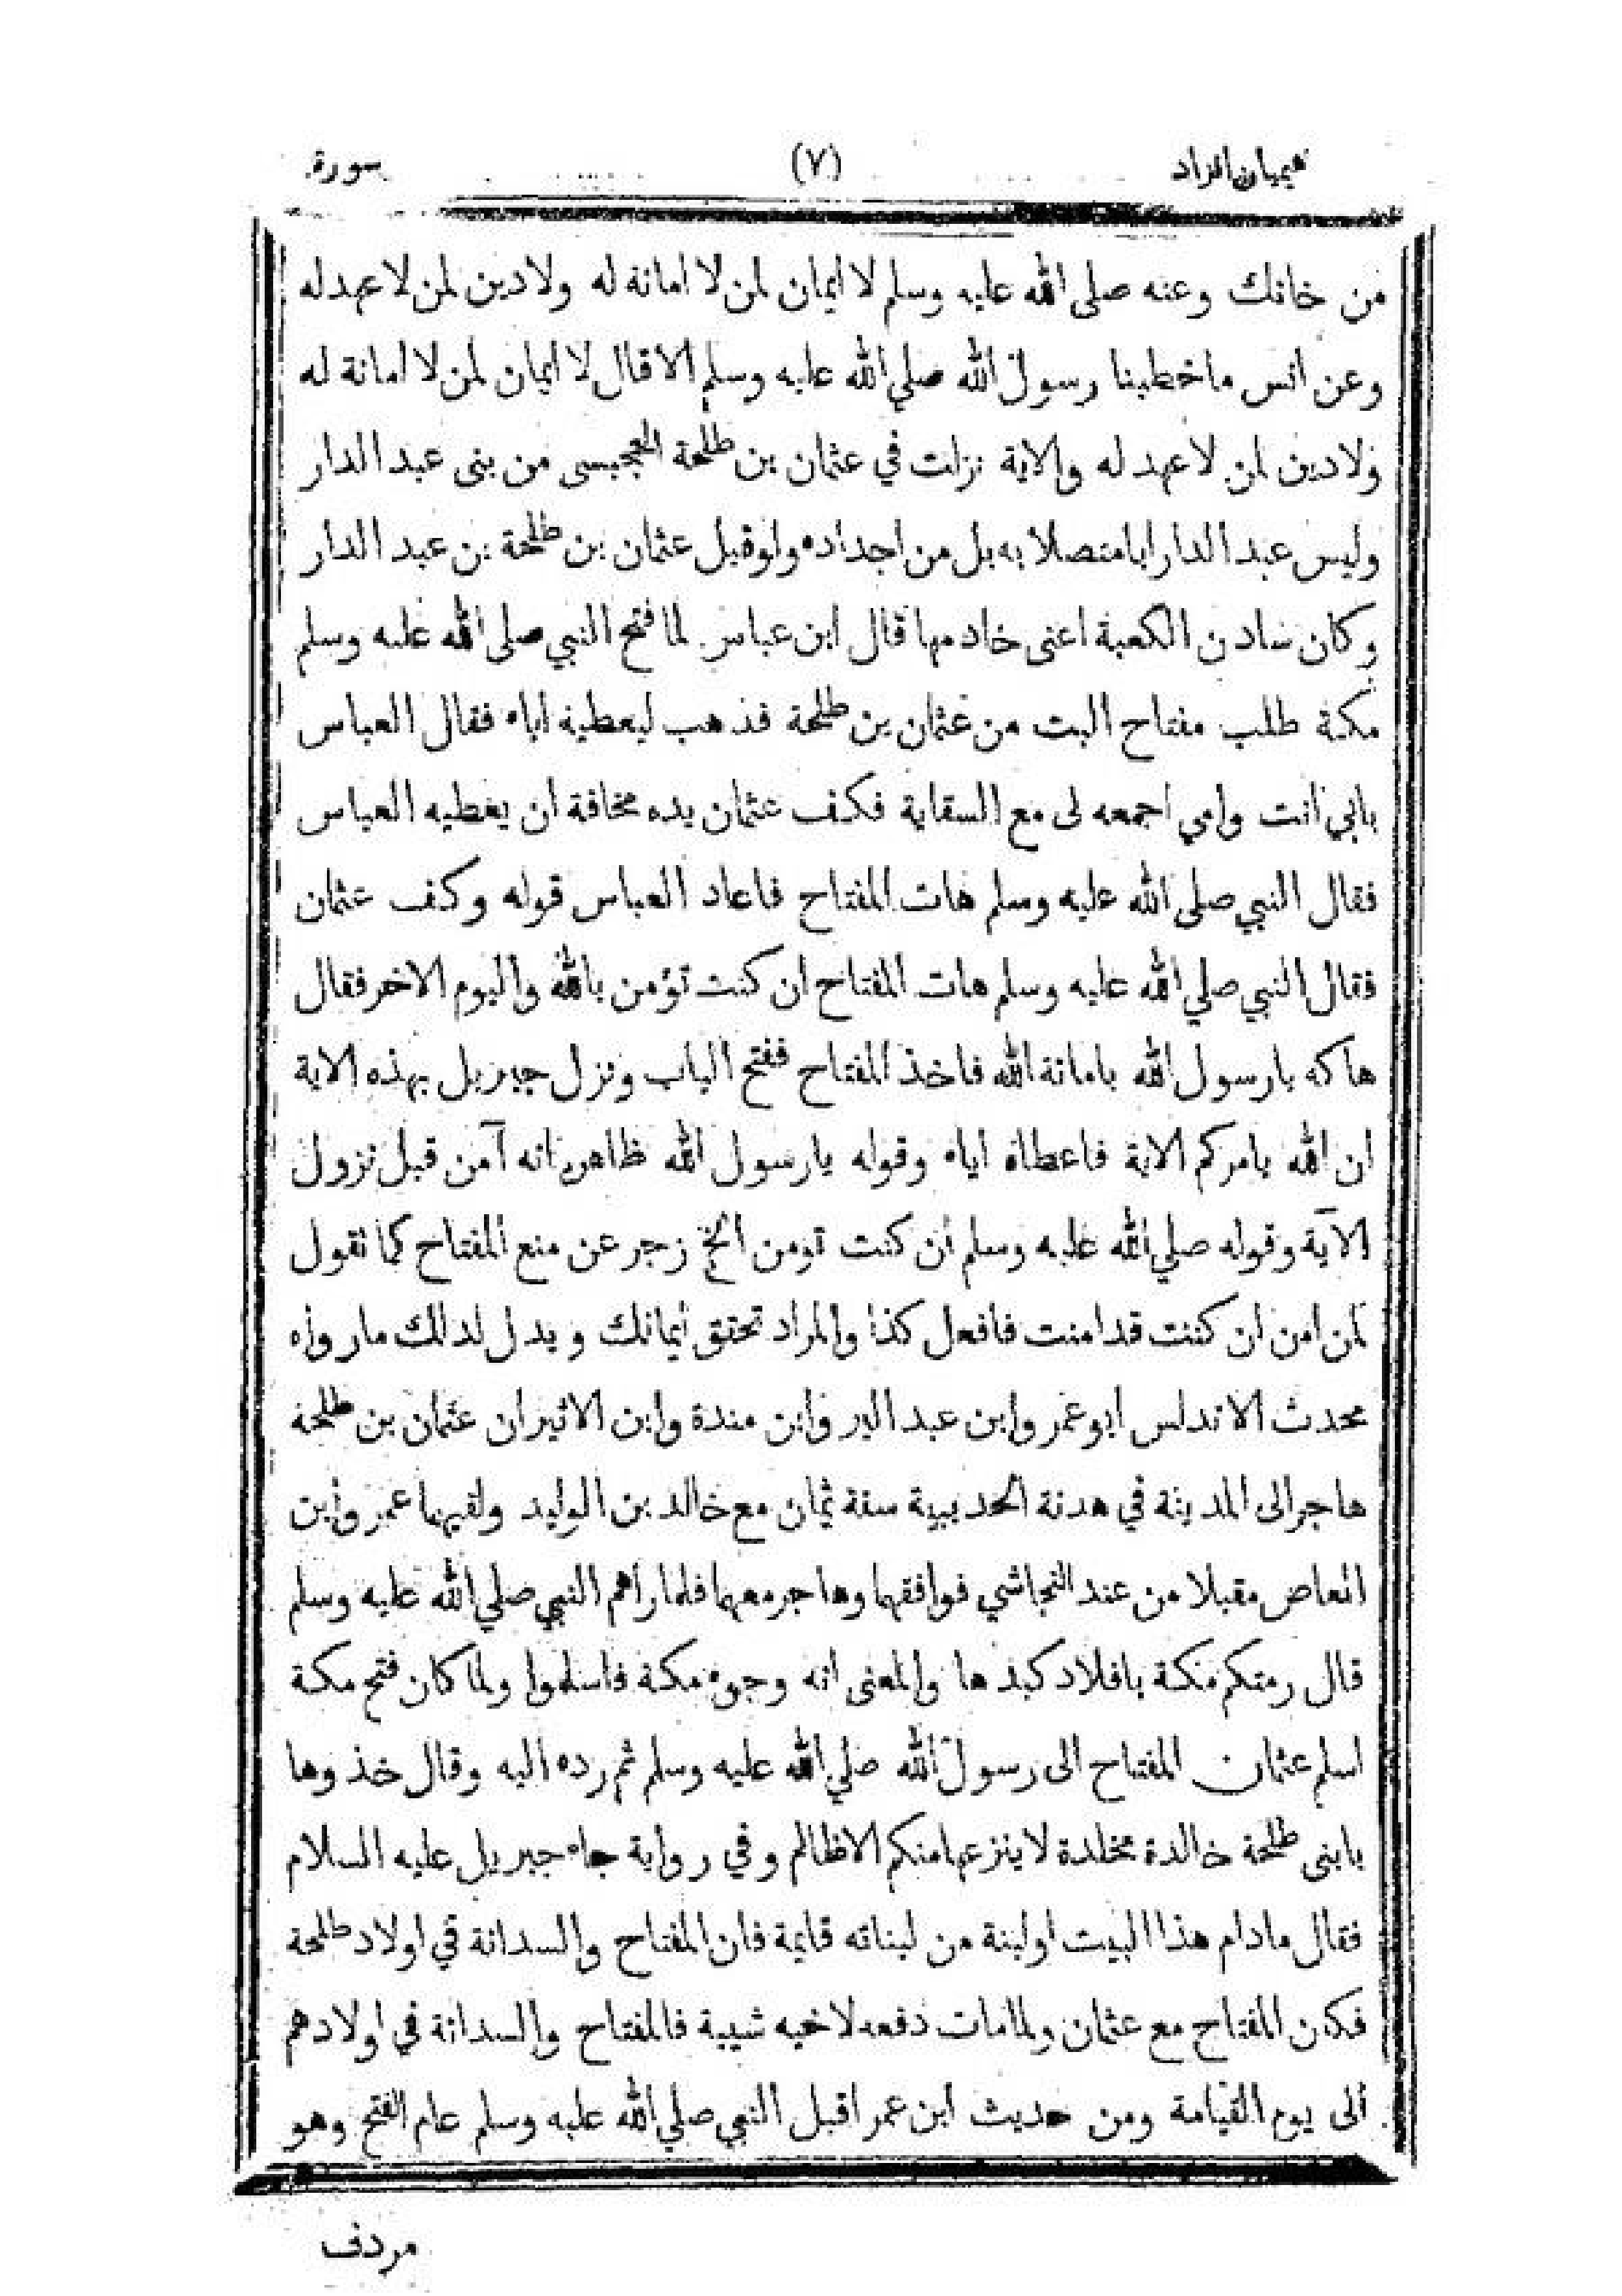 هيميان الزاد (٧) سورة
من خانك وعنه صلى الله عليه وسلم لا ايمان لمن لا امانة له ولا دين لمن لا عهد له
وعن انس ما خطبنا رسول الله صلي الله عليه وسلم الا قال لا ايمان لمن لا امانة له
ولا دين لمن لا عهد له والاية نزلت في عثمان بن طلحة الحجبي من بنى عبد الدار
وليس عبد الدار ابا متصلا به بل من اجداده ولو قيل عثمان بن طلحة بن عبد الدار
وكان سادن الكعبة اعنى خادمها قال ابن عباس لما فتح النبي صلى الله عليه وسلم
مكة طلب مفتاح البت من عثمان بن طلحة فذهب ليعطيه اياه فقال العباس
بابي انت وامي اجمعه لى مع السقاية فكف عثمان يده مخافة ان يعطيه العباس
فقال النبي صلى الله عليه وسلم هات المفتاح فاعاد العباس قوله وكف عثمان
فقال النبي صلي الله عليه وسلم هات المفتاح ان كنت تؤمن بالله واليوم الاخر فقال
هاكه يا رسول الله بامانة الله فاخذ المفتاح ففتح الباب ونزل جبريل بهذه الاية
ان الله يامركم الاية فاعطاه اياه وقوله يا رسول الله ظاهر انه آمن قبل نزول
الآية وقوله صلي الله عليه وسلم ان كنت تومن الخ زجر عن منع المفتاح كما تقول
لمن امن ان كنت قد امنت فافعل كذا والمراد تحقق ايمانك ويدل لدلك ما رواه
محدث الاندلس ابو عمر وابن عبد البر وابن مندة وابن الاثير ان عثمان بن طلحة
هاجر الى المدينة في هدنة الحديبية سنة ثمان مع خالد بن الوليد ولقيهما عمر وابن
العاص مقبلا من عند النجاشي فوافقهما وهاجر معهما فلما رأهم النبي صلي الله عليه وسلم
قال رمتكم مكة بافلاد كبدها والمعنى انه وجوه مكة فاسلموا ولما كان فتح مكة
اسلم عثمان المفتاح الى رسول الله صلي الله عليه وسلم ثم رده اليه وقال خذوها
يا بنى طلحة خالدة مخلدة لا ينزعها منكم الا ظالم وفي رواية جاء جبريل عليه السلام
فقال ما دام هذا البيت او لبنة من لبناته قايمة فان المفتاح والسدانة في اولاد طلحة
فكان المفتاح مع عثمان ولما مات دفعه لاخيه شيبة فالمفتاح والسدانة في اولادهم
الى يوم القيامة ومن حديث ابن عمر اقبل النبي صلي الله عليه وسلم عام الفتح وهو
مردف